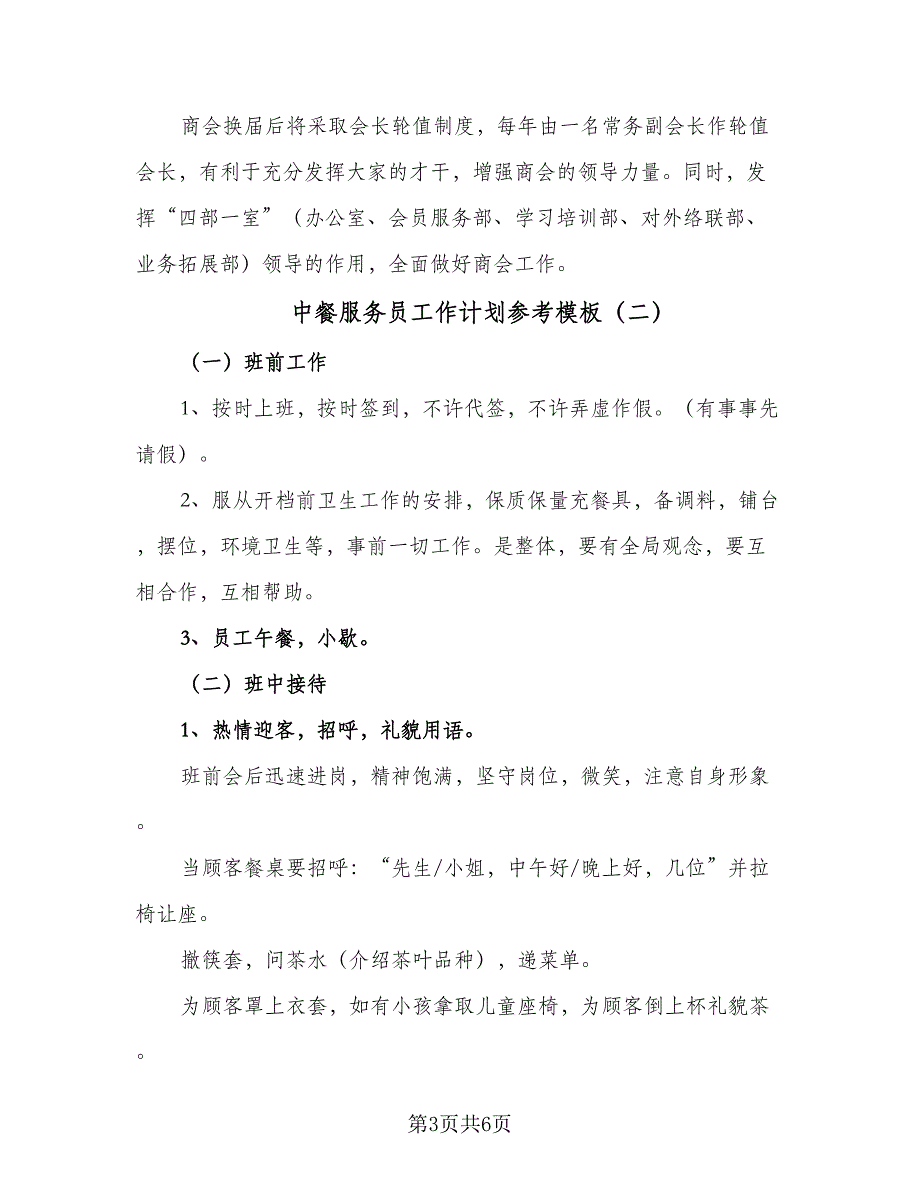 商会换届后将采取会长轮值制度，每年由一名常务副会长作轮值
会长，有利于充分发挥大家的才干，增强商会的领导力量。同时，发
挥“四部一室”（办公室、会员服务部、学习培训部、对外络联部、
业务拓展部）领导的作用，全面做好商会工作。
中餐服务员工作计划参考模板（二）
（一）班前工作
1、按时上班，按时签到，不许代签，不许弄虚作假。（有事事先
请假）。
2、服从开档前卫生工作的安排，保质保量充餐具，备调料，铺台
，摆位，环境卫生等，事前一切工作。是整体，要有全局观念，要互
相合作，互相帮助。
3、员工午餐，小歇。
（二）班中接待
1、热情迎客，招呼，礼貌用语。
班前会后迅速进岗，精神饱满，坚守岗位，微笑，注意自身形象
。
当顾客餐桌要招呼：“先生/小姐，中午好/晚上好，几位”并拉
椅让座。
撤筷套，问茶水（介绍茶叶品种），递菜单。
为顾客罩上衣套，如有小孩拿取儿童座椅，为顾客倒上杯礼貌茶
。
第3页共6页